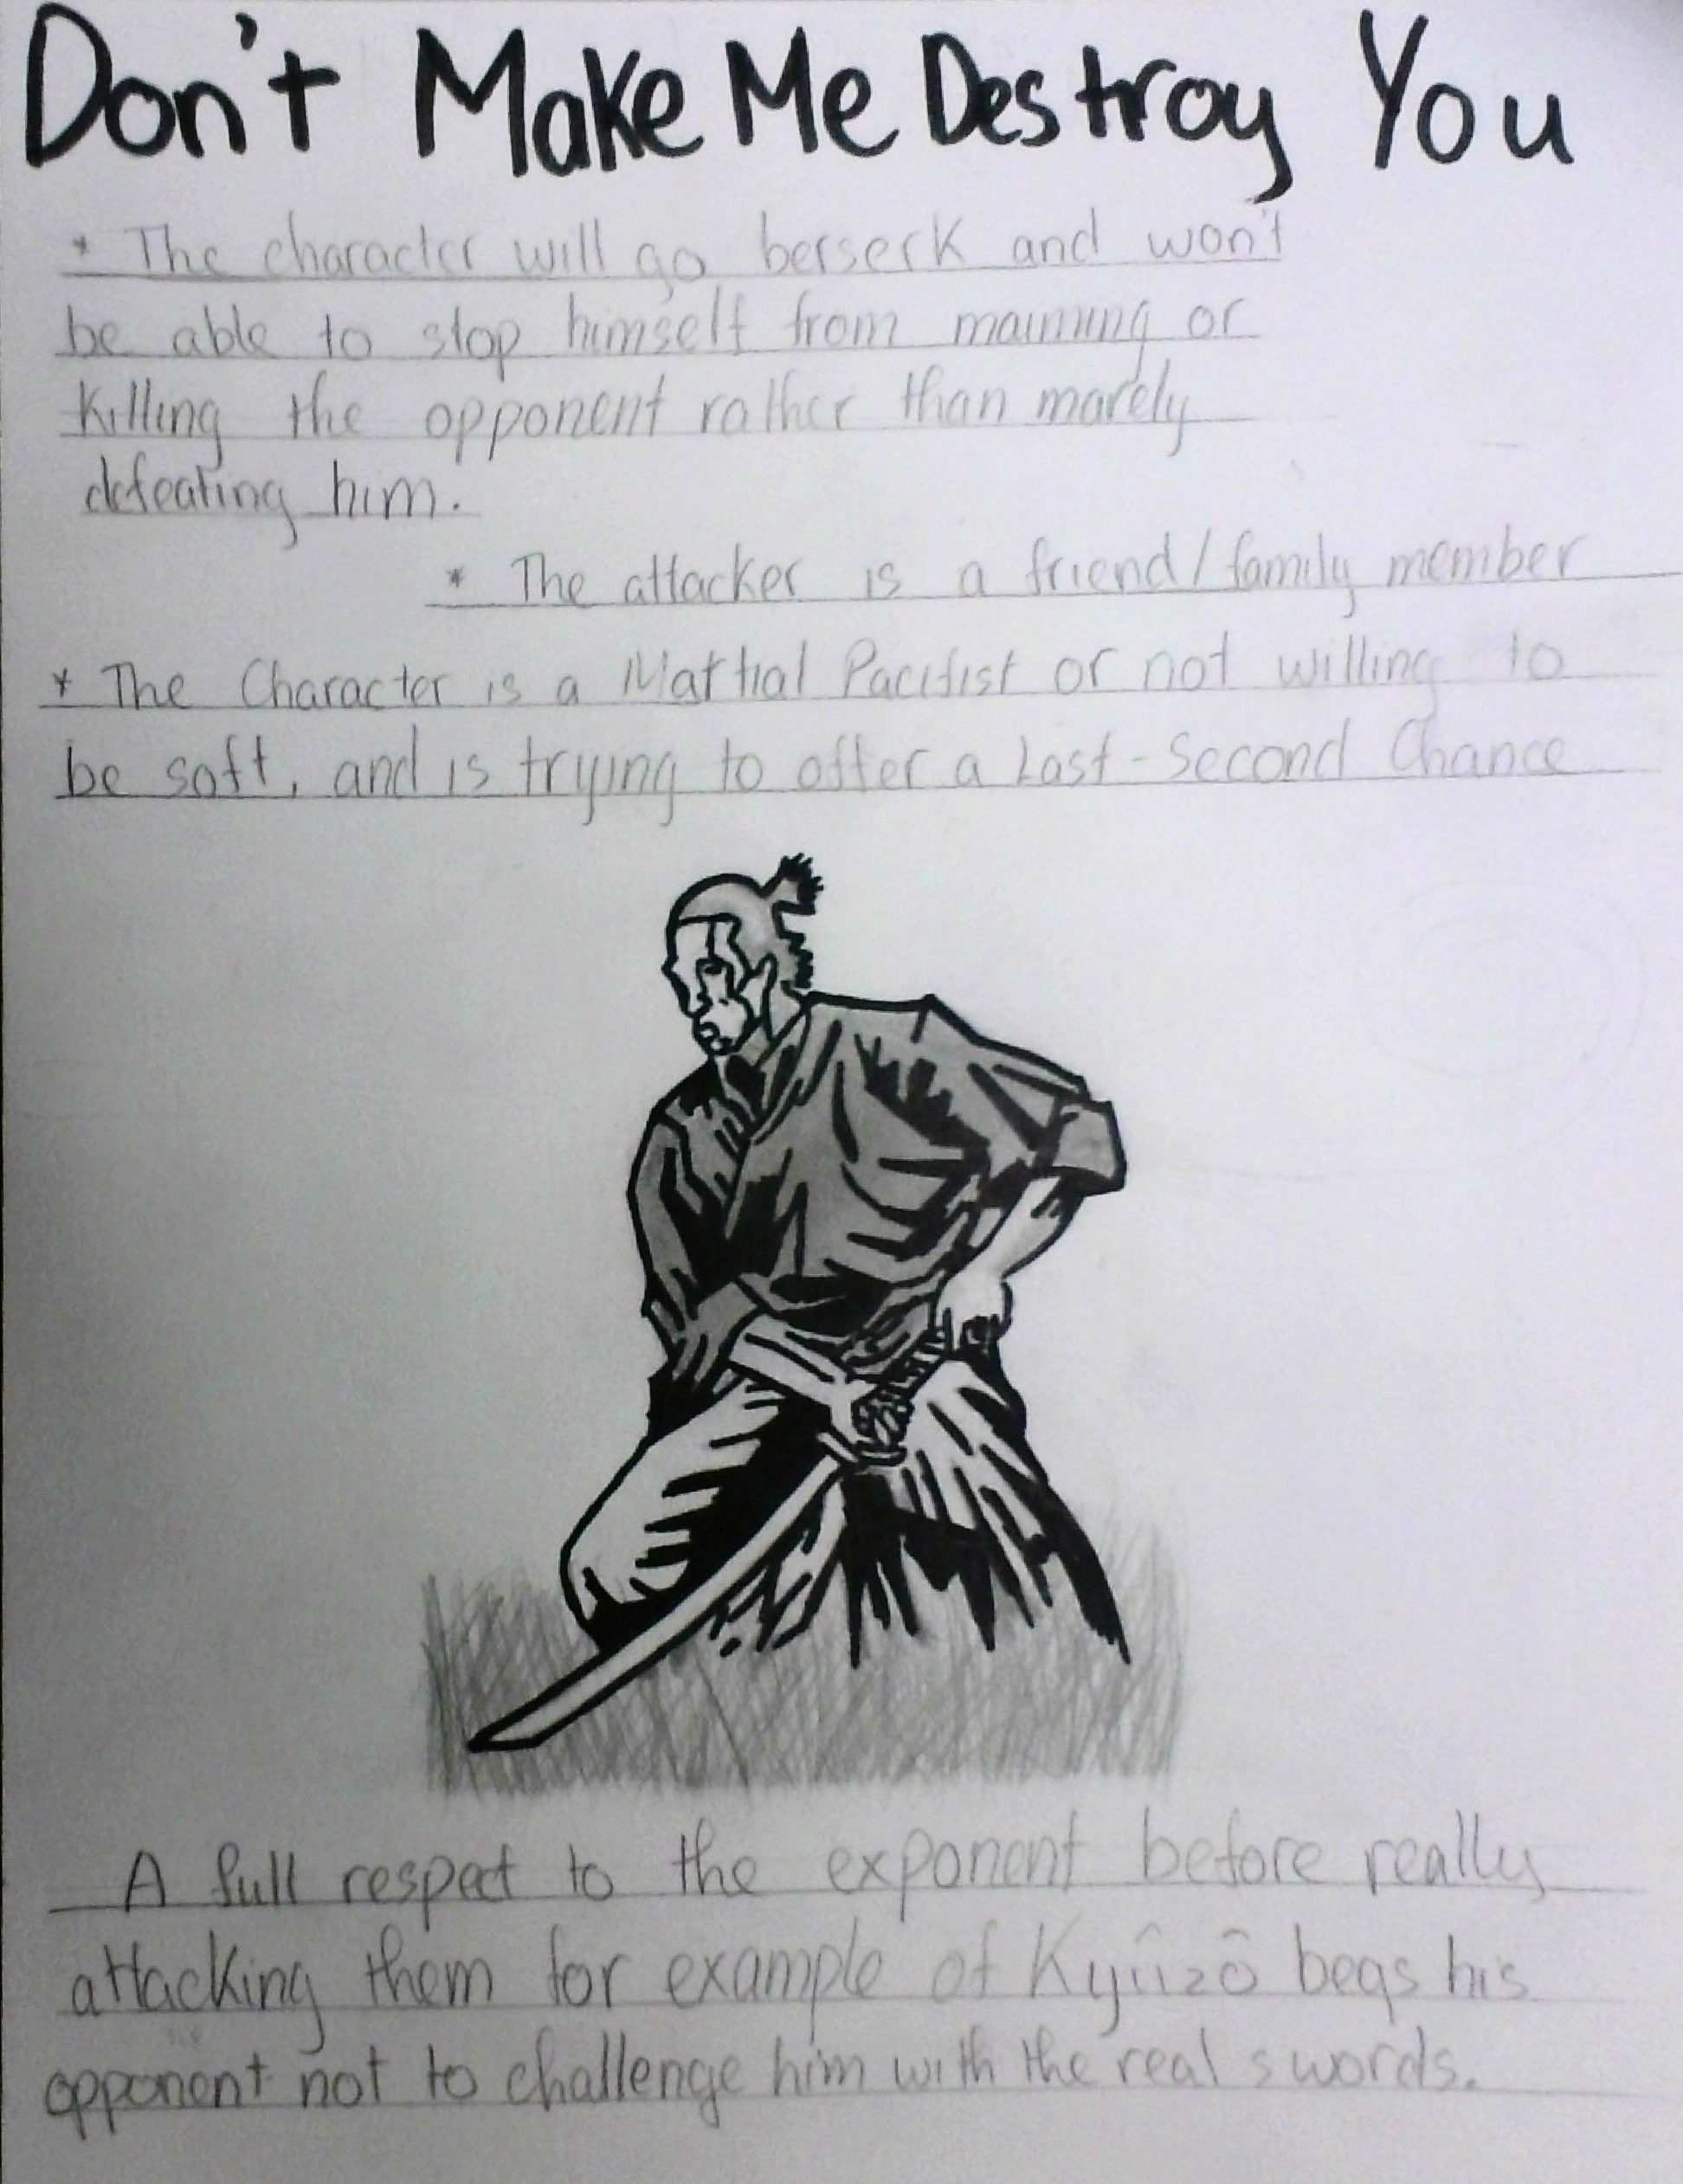 Don't Make Me Destroy You
* The character will go berserk and won't
be able to stop himself from maiming or
killing the opponent rather than marely
defeating him.
* The attacker is a friend/family member
* The Character is a Martial Pacifist or not willing to
be soft, and is trying to offer a Last-Second Chance
A full respect to the exponent before really
attacking them for example of Kyûzô begs his
opponent not to challenge him with the real swords.